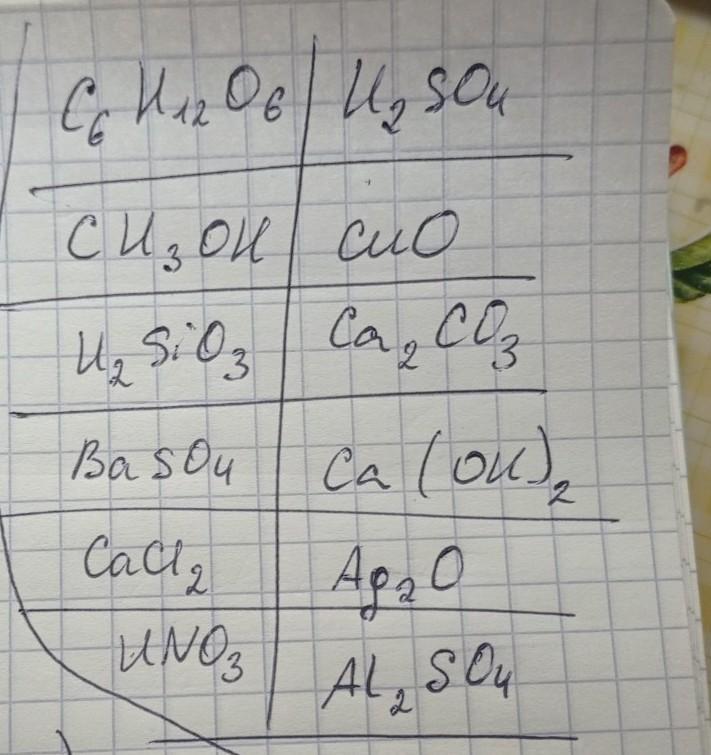 C₆H₁₂O₆ H₂SO₄
CH₃OH CuO
H₂SiO₃ Ca₂CO₃
BaSO₄ Ca(OH)₂
CaCl₂ Ag₂O
HNO₃ Al₂SO₄